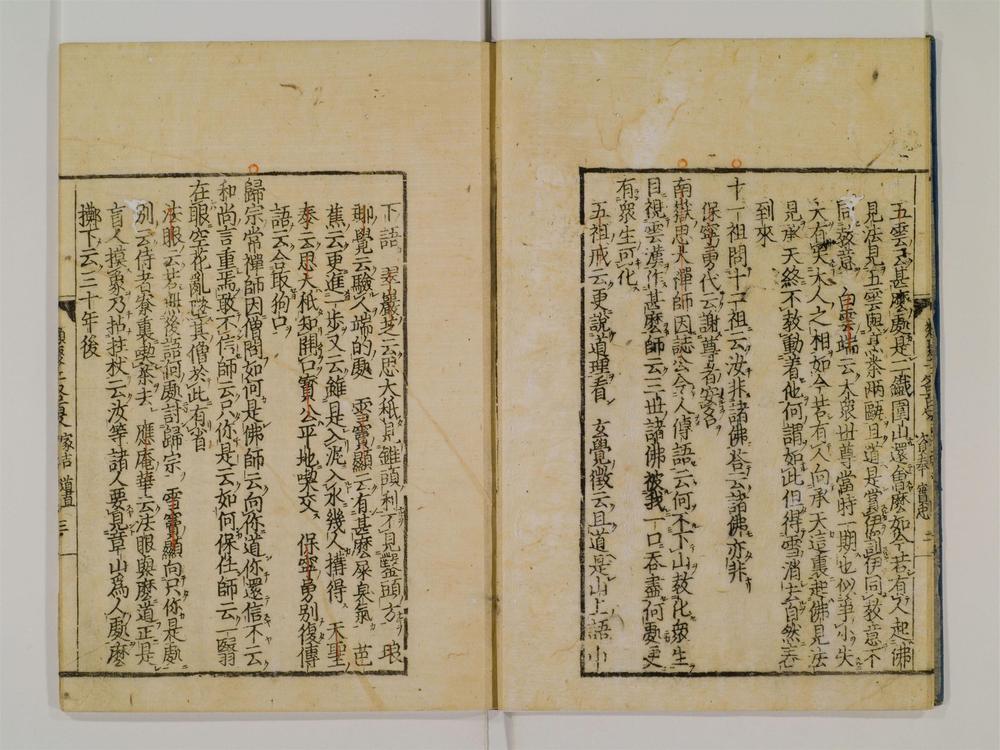 五雲云甚麼處是二鐵圍山還會麼如今若有人起佛
見法見五雲與烹茶兩甌且道是賞伊罰伊同教意不
同教意　白雲端云大眾世尊當時一期也似爭小失
大有実大人之相如今若有人向承天這裏起佛見法
見承天終不敖動著他何謂如此但得雪消去自然春
到來
十一祖問十二祖云汝非諸佛荅云諸佛亦非
保寧勇代云謝尊者安名
南嶽思大禪師因誌公令人傳語云何不下山教化眾生
目視雲漢作甚麼師云三世諸佛被我一口吞盡何處更
有眾生可化
五祖戒云更說道理看　玄覺徵云且道是山上語山
下語　翠巖芝云思大秖見錐頭利不見鑿頭方　琅
瑘覺云驗人端的處　雪竇顯云有甚麼屎臭氣　芭
蕉云更進一步又云雖是入泥入水幾人搆得　天聖
泰云思大秖知開口寶公平地喫交　保寧勇別復傳
語云合取狗口
歸宗常禪師因僧問如何是佛師云向你道你還信不云
和尚言重焉敢不信師云只你是云如何保任師云一翳
在眼空花亂墜其僧於此有省
法眼云若無後語何處討歸宗　雪竇顯向只你是處
別云侍者寮裏喫茶去　應庵華云法眼與麼道正是
盲人摸象乃拈拄杖云汝等諸人要見章山為人處麼
擲下云三十年後